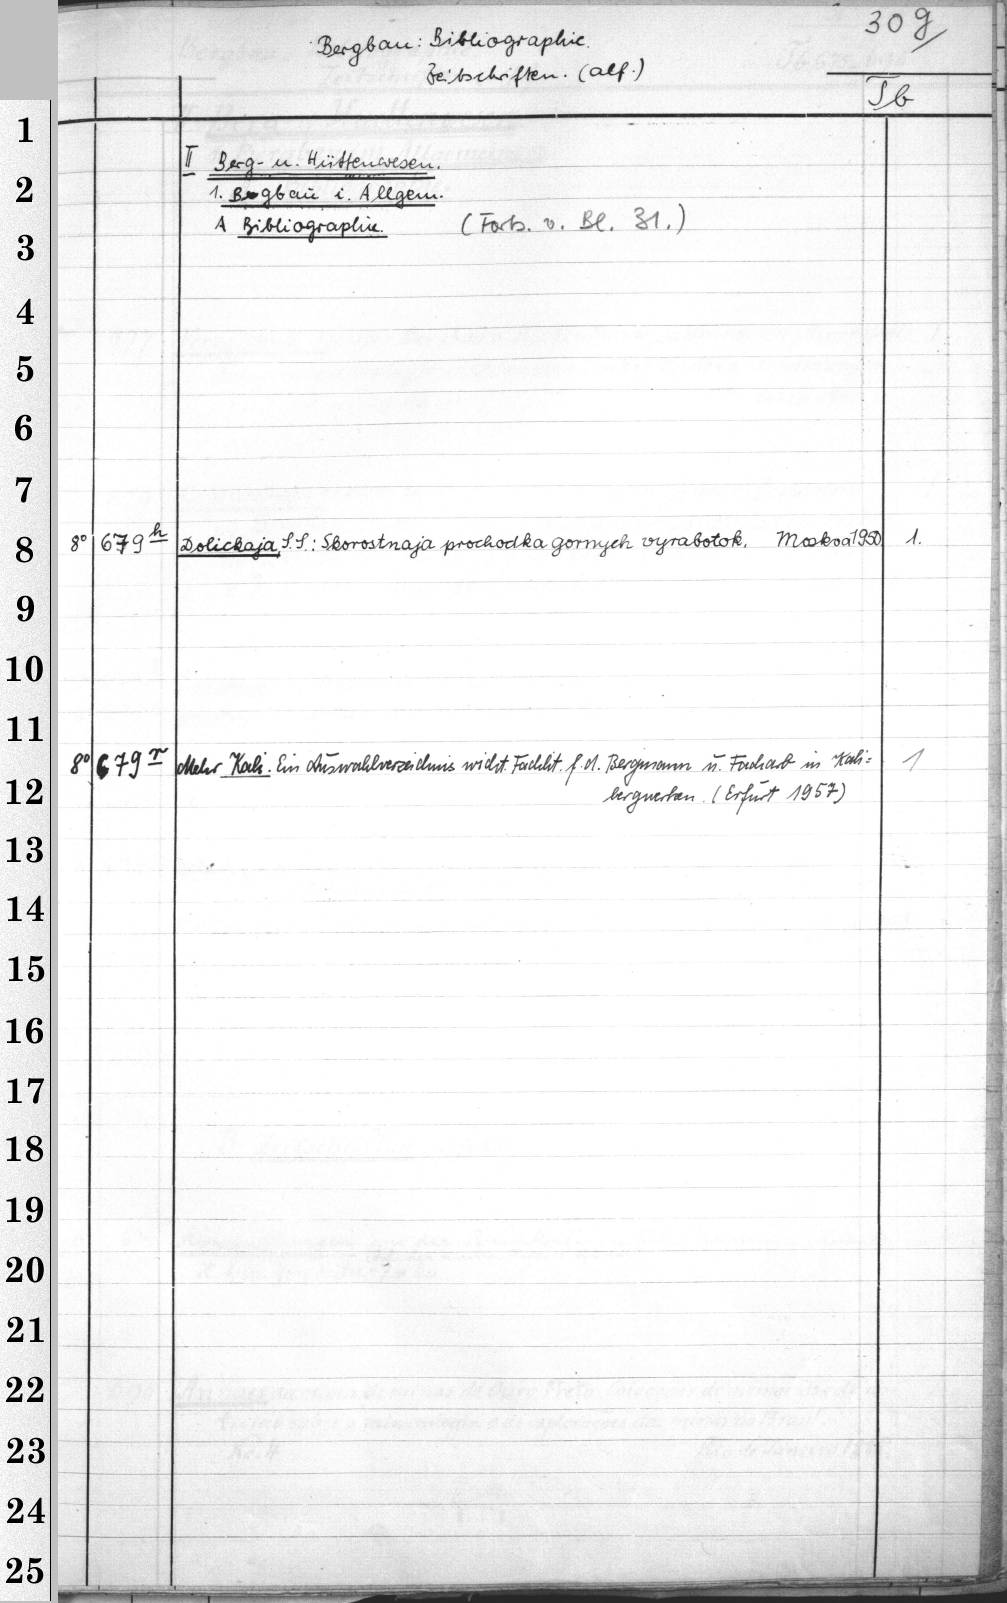 30g
Bergbau: Bibliographie.
Zeitschriften. (alf.)
Tb
II Berg- u. Hüttenwesen.
1. Bergbau i. Allgem.
A Bibliographie. (Forts. v. Bl. 31.)
8° 679 h Dolickaja, S.S.: Skorostnaja prochodka gornych vyrabotok. Moskva 1950 1.
8° 679 r Mehr Kali. Ein Auswahlverzeichnis wicht. Fachlit. f. d. Bergmann u. Facharb in Kali=
bergwerken. (Erfurt 1957) 1
1
2
3
4
5
6
7
8
9
10
11
12
13
14
15
16
17
18
19
20
21
22
23
24
25